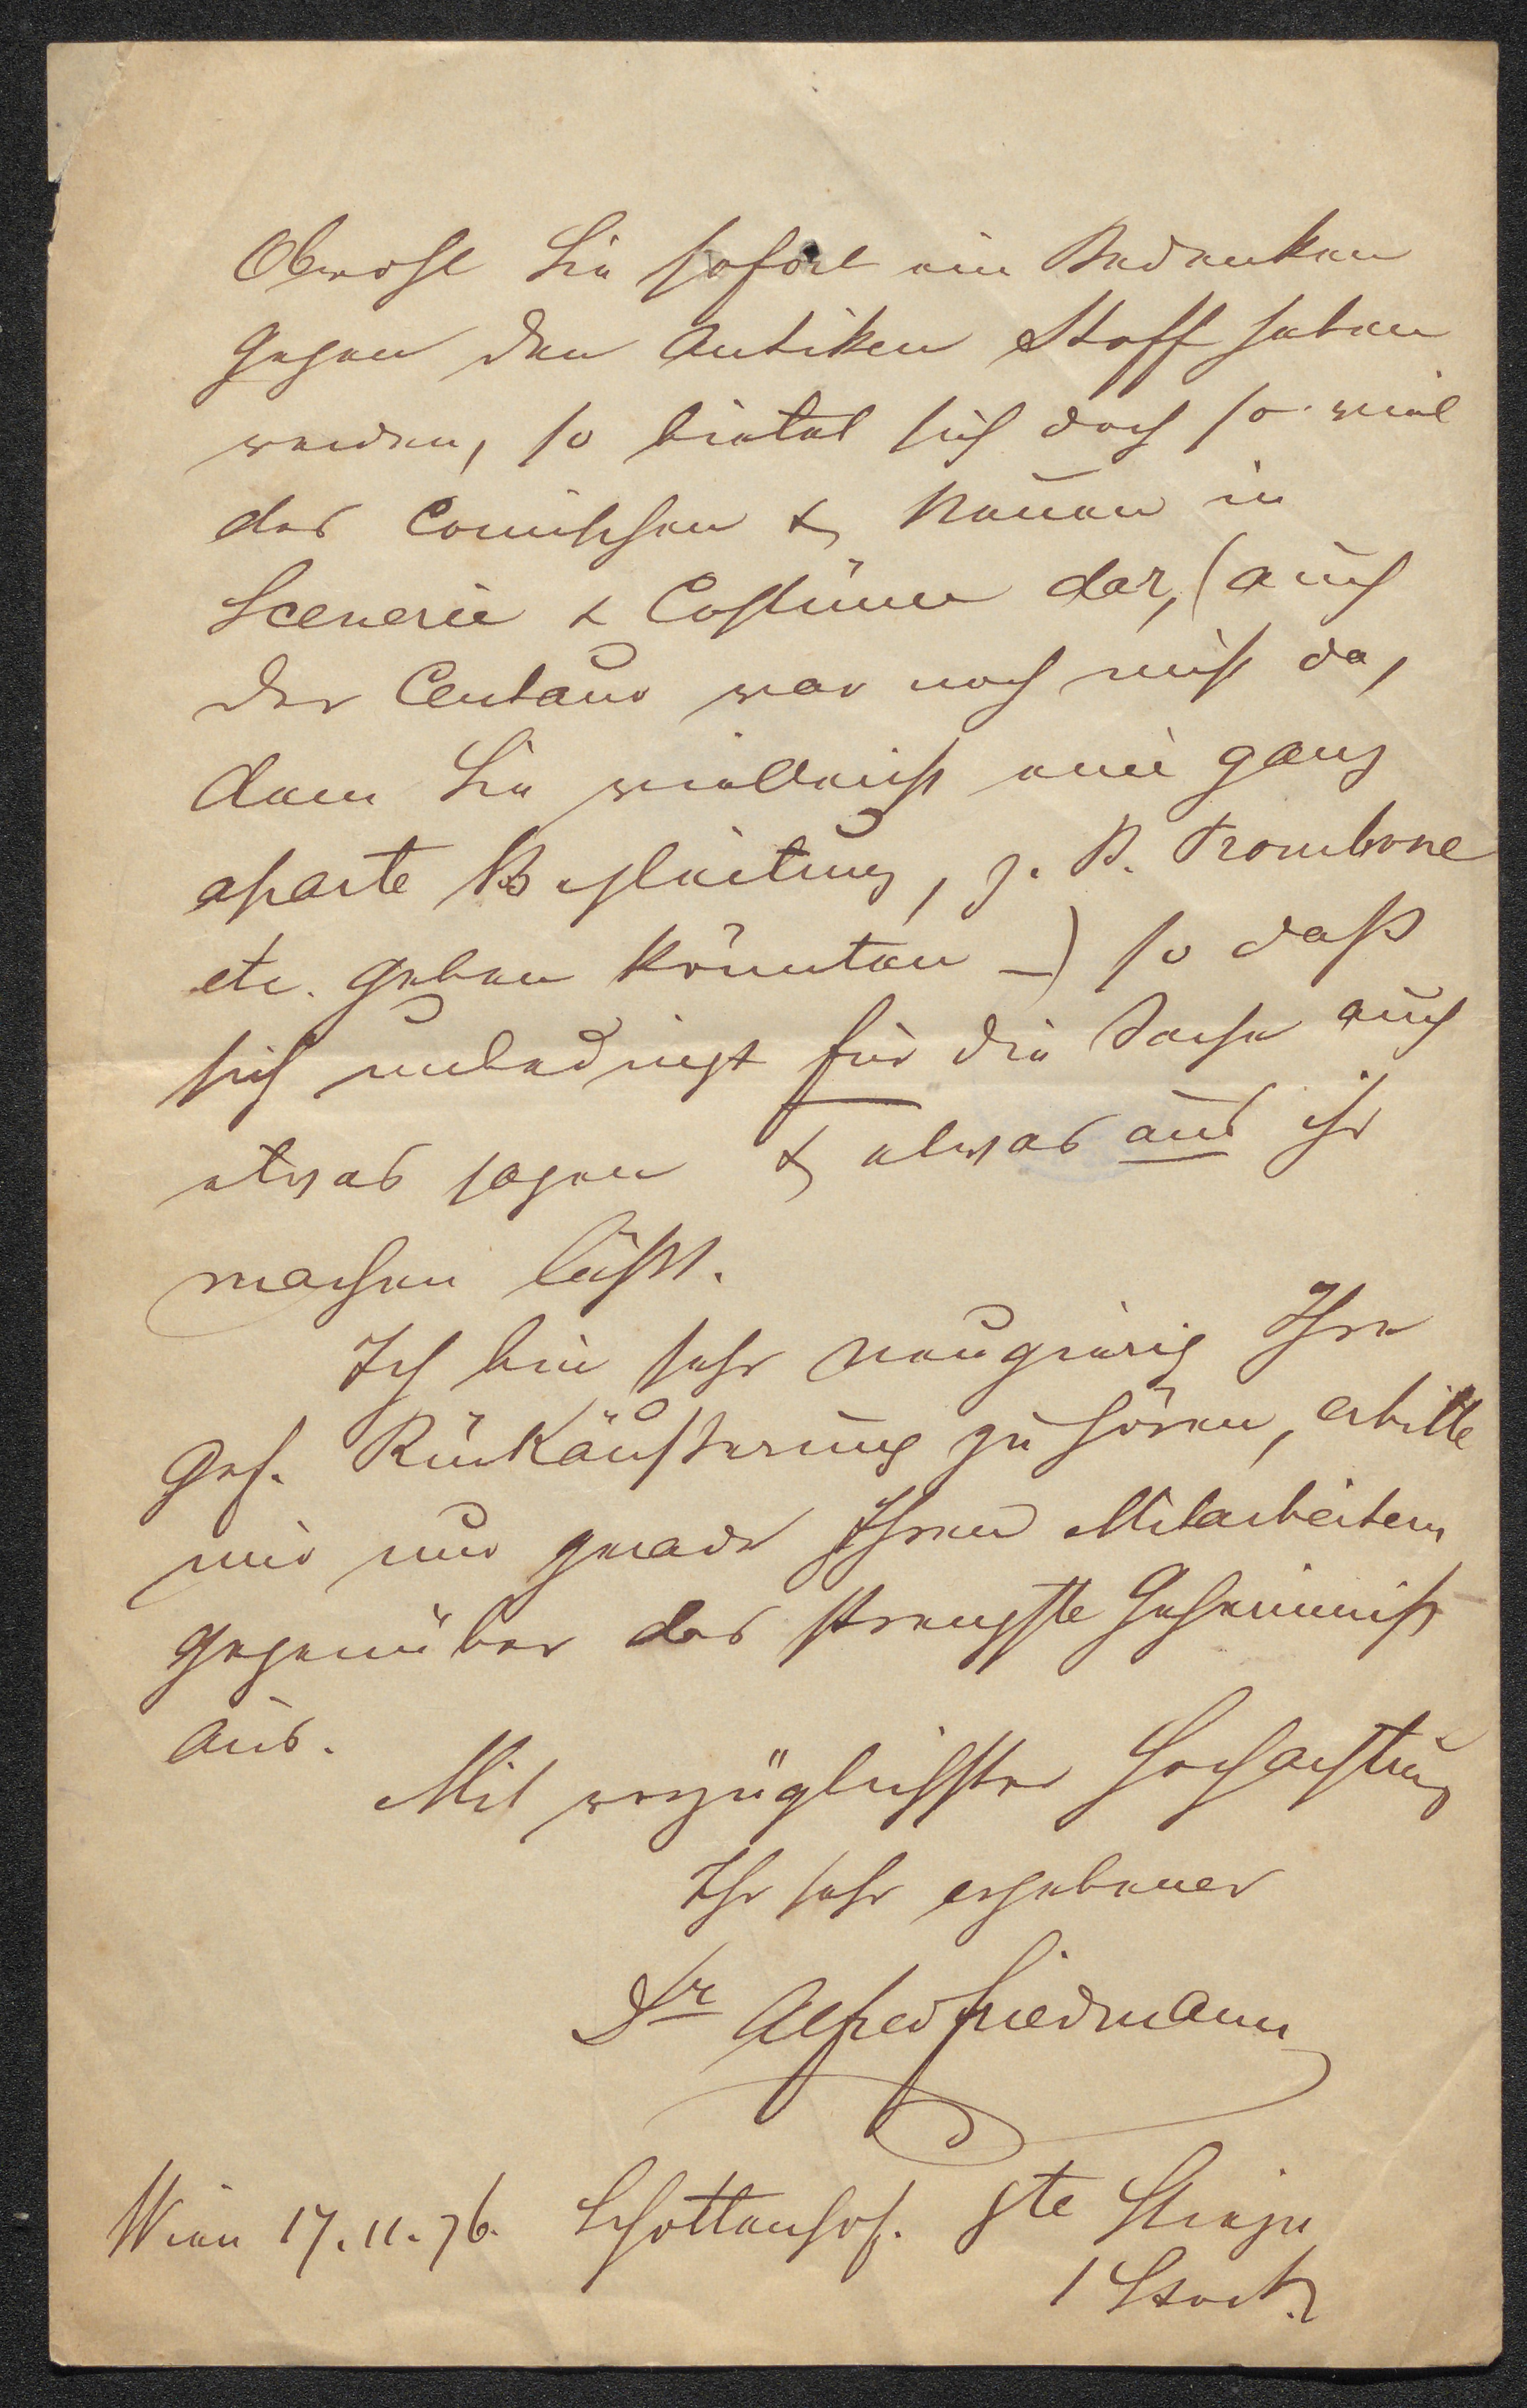 Obwohl Sie sofort ein Bedenken
gegen den Antiken Stoff haben
werden, so bietet sich doch so viel
des Comischen & Neuen in
Scenerie & Costümen dar, (auch
der Centaur war noch nicht da,
dem Sie vielleicht eine ganz
aparte Begleitung, z. B. Trombone
etc. geben könnten –) so daß
sich unbedingt für die Sache auch
etwas sagen & etwas aus ihr
machen läßt.
Ich bin sehr neugierig Ihre
gef. Rückäußerung zu hören, erbitte
mir nur gerade Ihren Mitarbeitern
gegenüber das strengste Geheimniß
aus.
Mit vorzüglichster Hochachtung
Ihr sehr ergebener
Dr Alfred Friedmann
Wien 17.11.76. Schottenhof. 8te Stiege
1 Stock